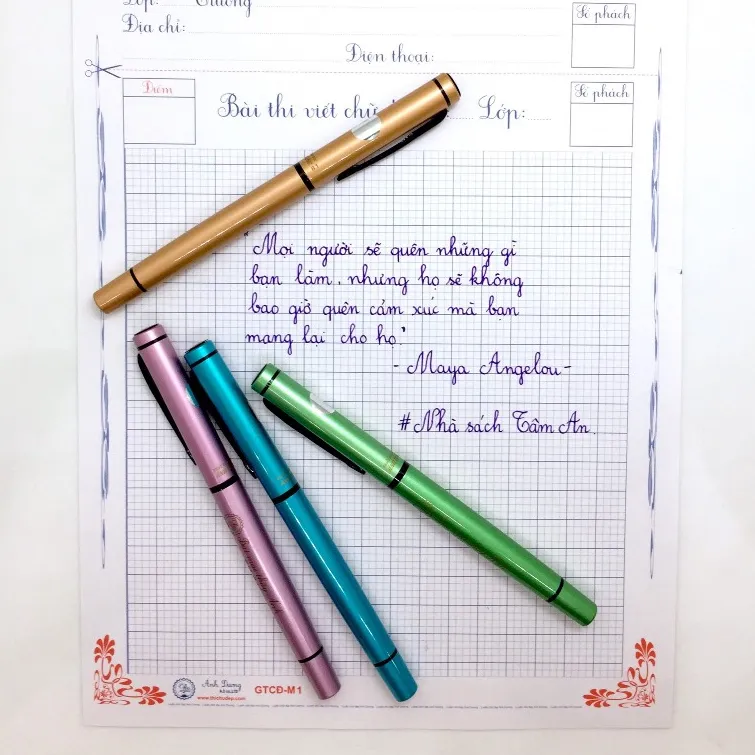 Lớp: Trường
Địa chỉ:
Điện thoại:
Số phách
Điểm
Bài thi viết chữ
Lớp:
Số phách
"Mọi người sẽ quên những gì
bạn làm, nhưng họ sẽ không
bao giờ quên cảm xúc mà bạn
mang lại cho họ."
- Maya Angelou -
# Nhà sách Tâm An.
Ánh Dương
www.thichudep.com
GTCĐ-M1